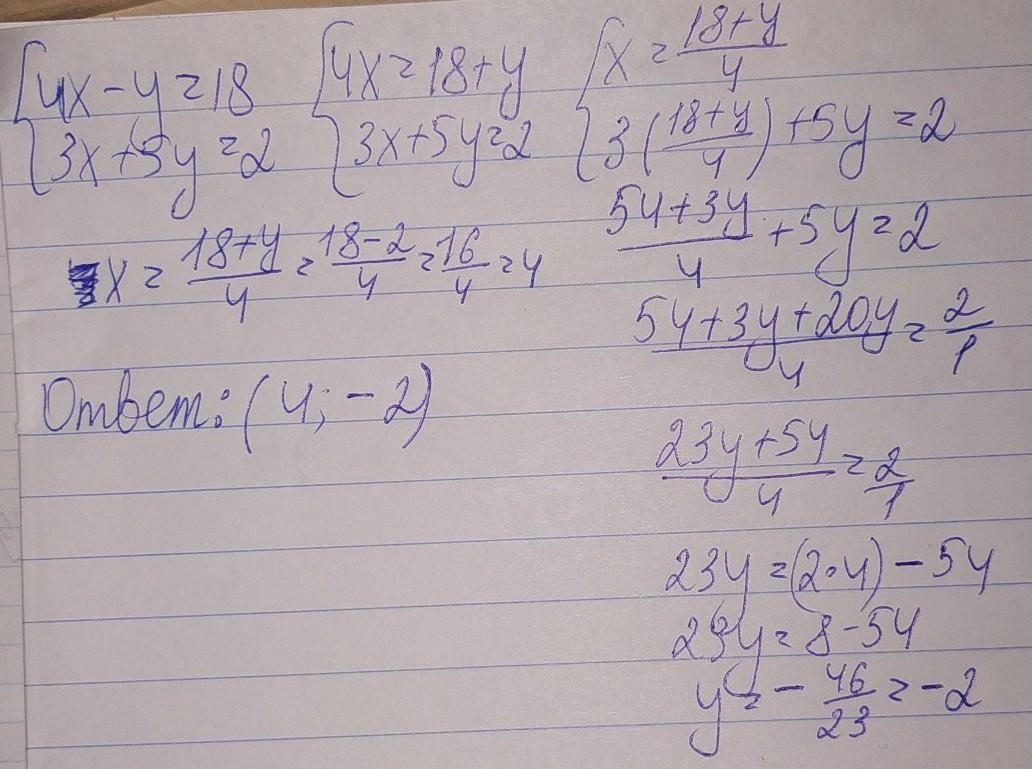 {4x-y=18 {4x=18+y {x=\frac{18+y}{4}
{3x+5y=2 {3x+5y=2 {3(\frac{18+y}{4})+5y=2
x=\frac{18+y}{4}=\frac{18-2}{4}=\frac{16}{4}=4
\frac{54+3y}{4}+5y=2
\frac{54+3y+20y}{4}=\frac{2}{1}
Ответ: (4; -2)
\frac{23y+54}{4}=\frac{2}{1}
23y=(2·4)-54
23y=8-54
y=-\frac{46}{23}=-2